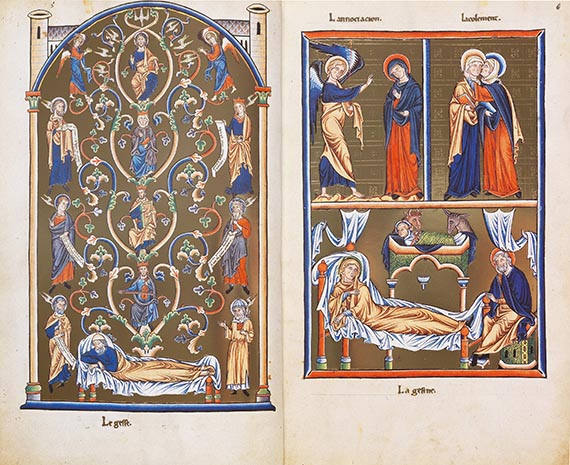 Le gesse.
6
L annoctacion.
lacolement.
La gesine.